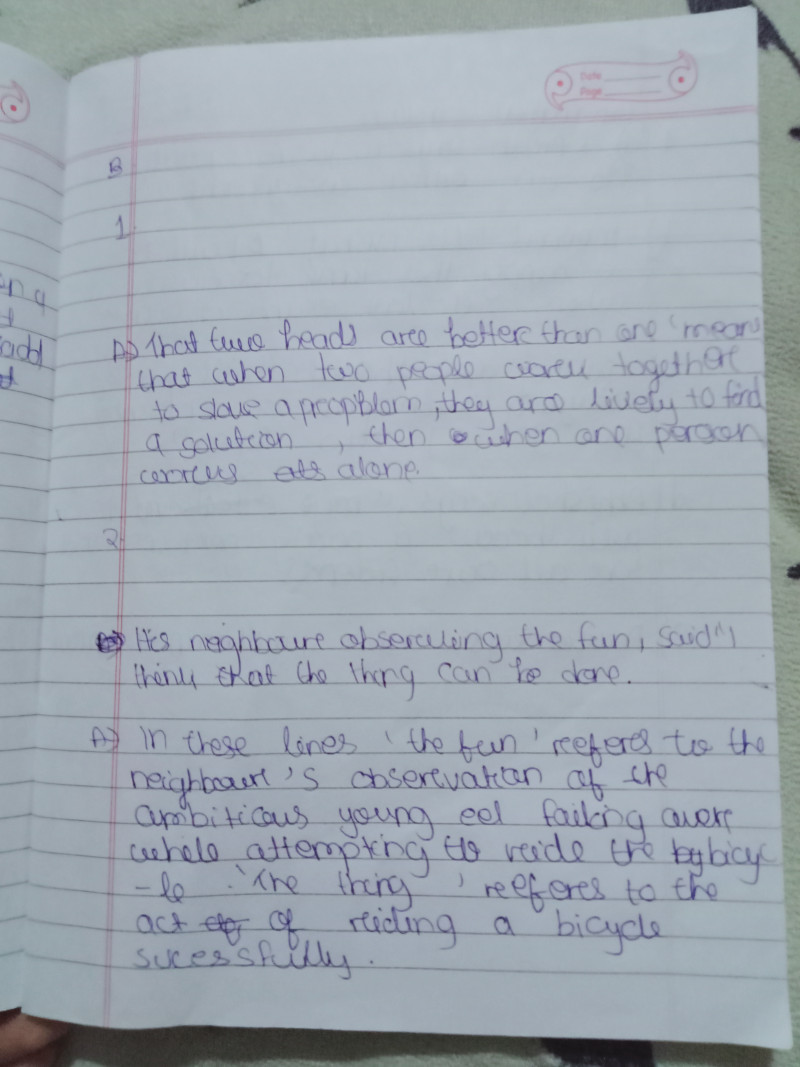 Date
Page
B
1
A) That two heads are better than one 'means
that when two people work together
to slove a propblem, they are lively to find
a solution, then when one person
works alone.
2
His neghboure obserwing the fun, said "I
think that the thing can be done.
A) In these lines 'the fun' referes to the
neighbour's observation of the
ambitious young eel failing over
while attempting to ride the bicyc
-le. 'The thing' referes to the
act of riding a bicycle
sucessfully.
ng
add